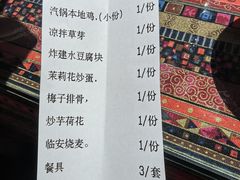 汽锅本地鸡.(小份) 1/份
凉拌草芽 1/份
炸建水豆腐块 1/份
茉莉花炒蛋. 1/份
梅子排骨, 1/份
炒芋荷花 1/份
临安烧麦。 1/份
餐具 3/套